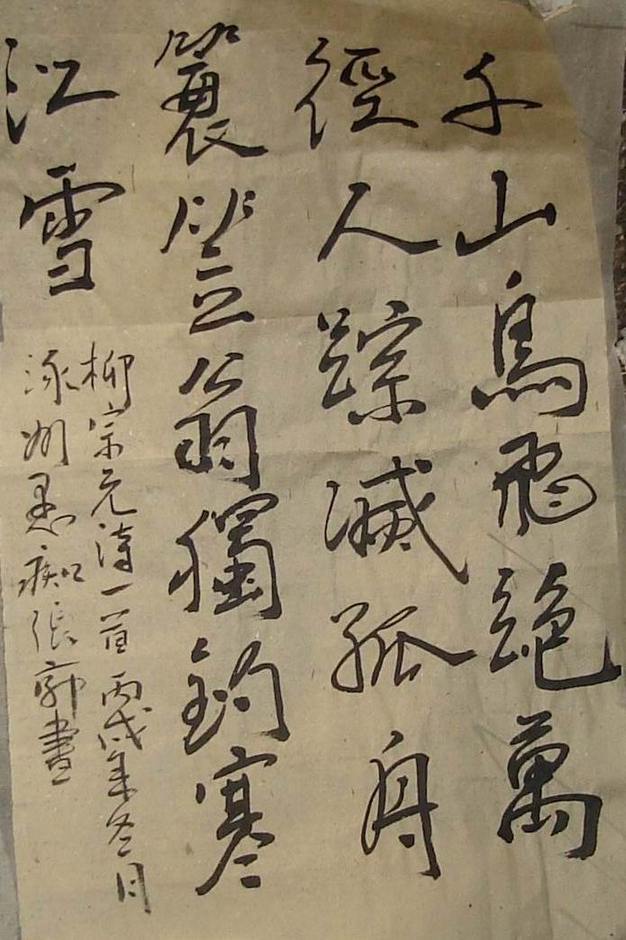 千山鳥飛絕萬
徑人踪滅孤舟
簑笠翁獨釣寒
江雪
柳宗元詩一首丙戌年冬月
涿州墨痴張郭書